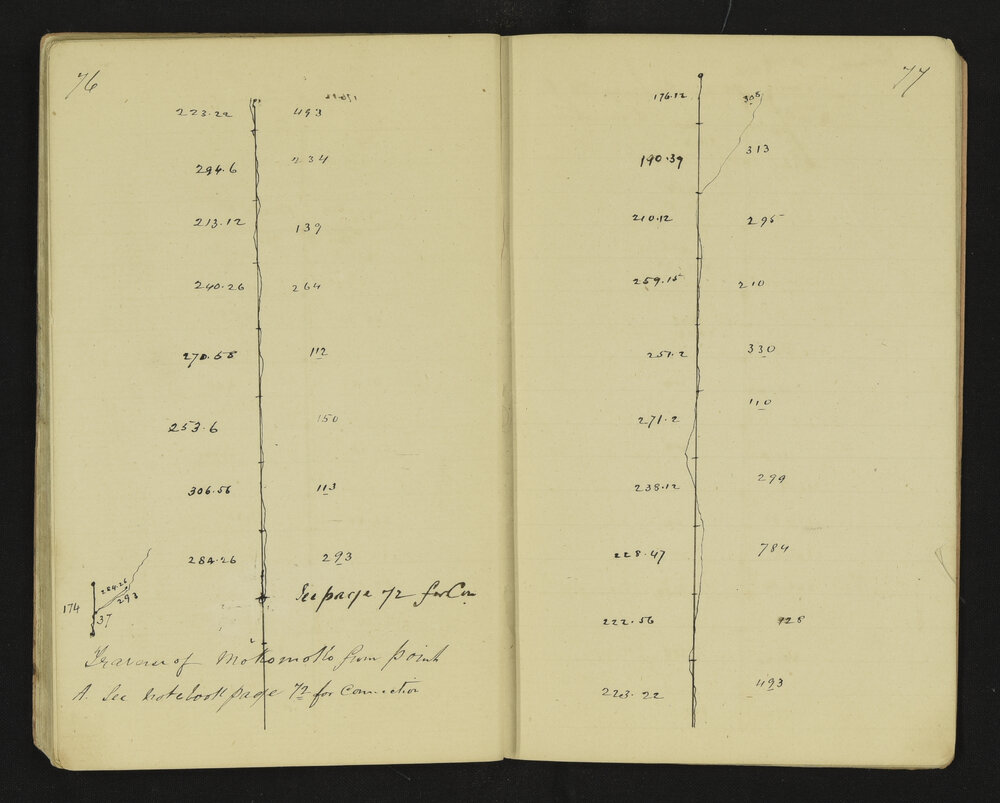 76
223.22 493
294.6 234
213.12 139
240.26 264
270.58 112
253.6 150
306.56 113
284.26 293
See page 72 for Con
284.26
293
174
37
Traverse of Mokomoko from point
A. See notebook page 72 for Connection
77
176.12 308
190.39 313
210.12 295
259.15 210
251.2 330
271.2 110
238.12 299
228.47 784
222.56 928
223.22 493